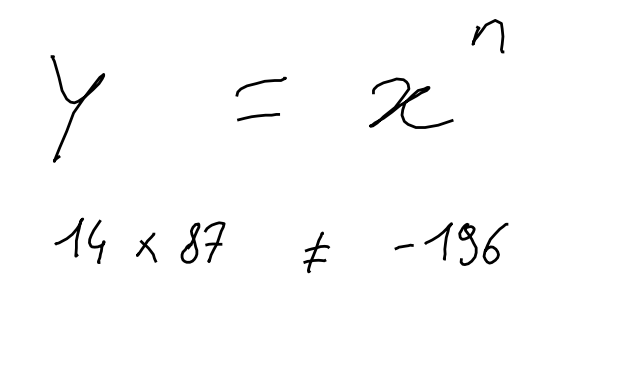 y = xⁿ
14 × 87 ≠ -196